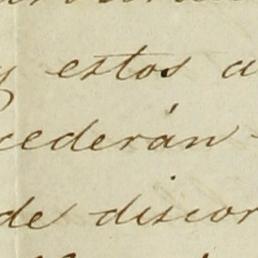 y estos a
cederán
de discor